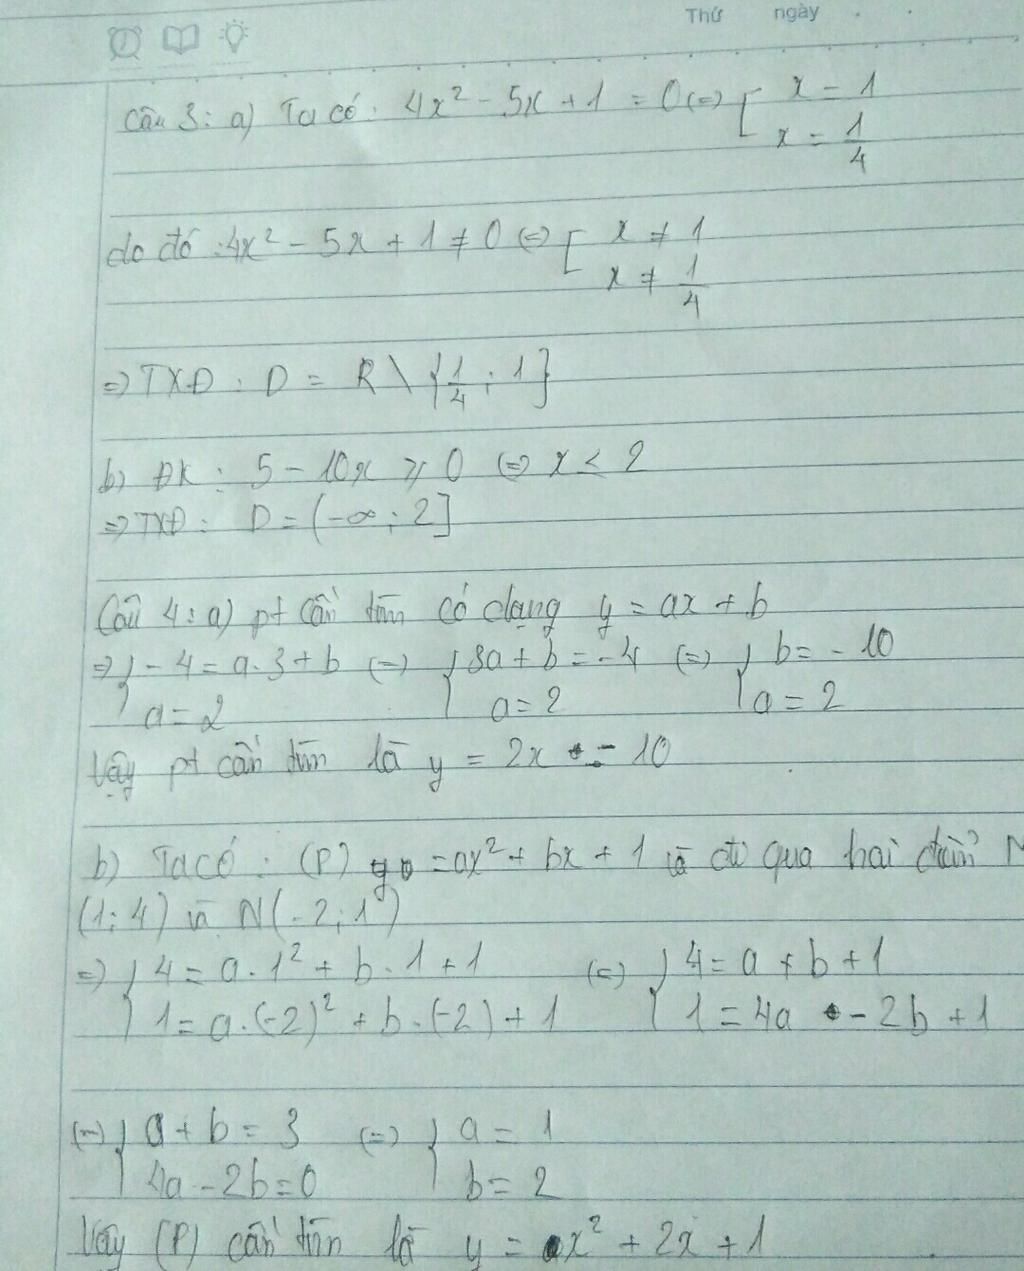 Thứ ngày
Câu 3: a) Ta có: 4x² - 5x + 1 = 0 (=) [ x = 1
x = 1/4
do đó: 4x² - 5x + 1 ≠ 0 (=) [ x ≠ 1
x ≠ 1/4
=) TXĐ: D = R \ {1/4; 1}
b) ĐK: 5 - 10x ⩾ 0 (=) x < 2
=) TXĐ: D = (-∞; 2]
Câu 4: a) pt cần tìm có dạng y = ax + b
=) { - 4 = a.3 + b (=) { 3a + b = -4 (=) { b = - 10
a = 2 a = 2 a = 2
Vậy pt cần tìm là y = 2x - 10
b) Ta có: (P) y = ax² + bx + 1 và đi qua hai điểm M
(1; 4) và N(-2; 1)
=) { 4 = a.1² + b.1 + 1 (=) { 4 = a + b + 1
1 = a.(-2)² + b.(-2) + 1 1 = 4a - 2b + 1
(=) { a + b = 3 (=) { a = 1
4a - 2b = 0 b = 2
Vậy (P) cần tìm là y = x² + 2x + 1